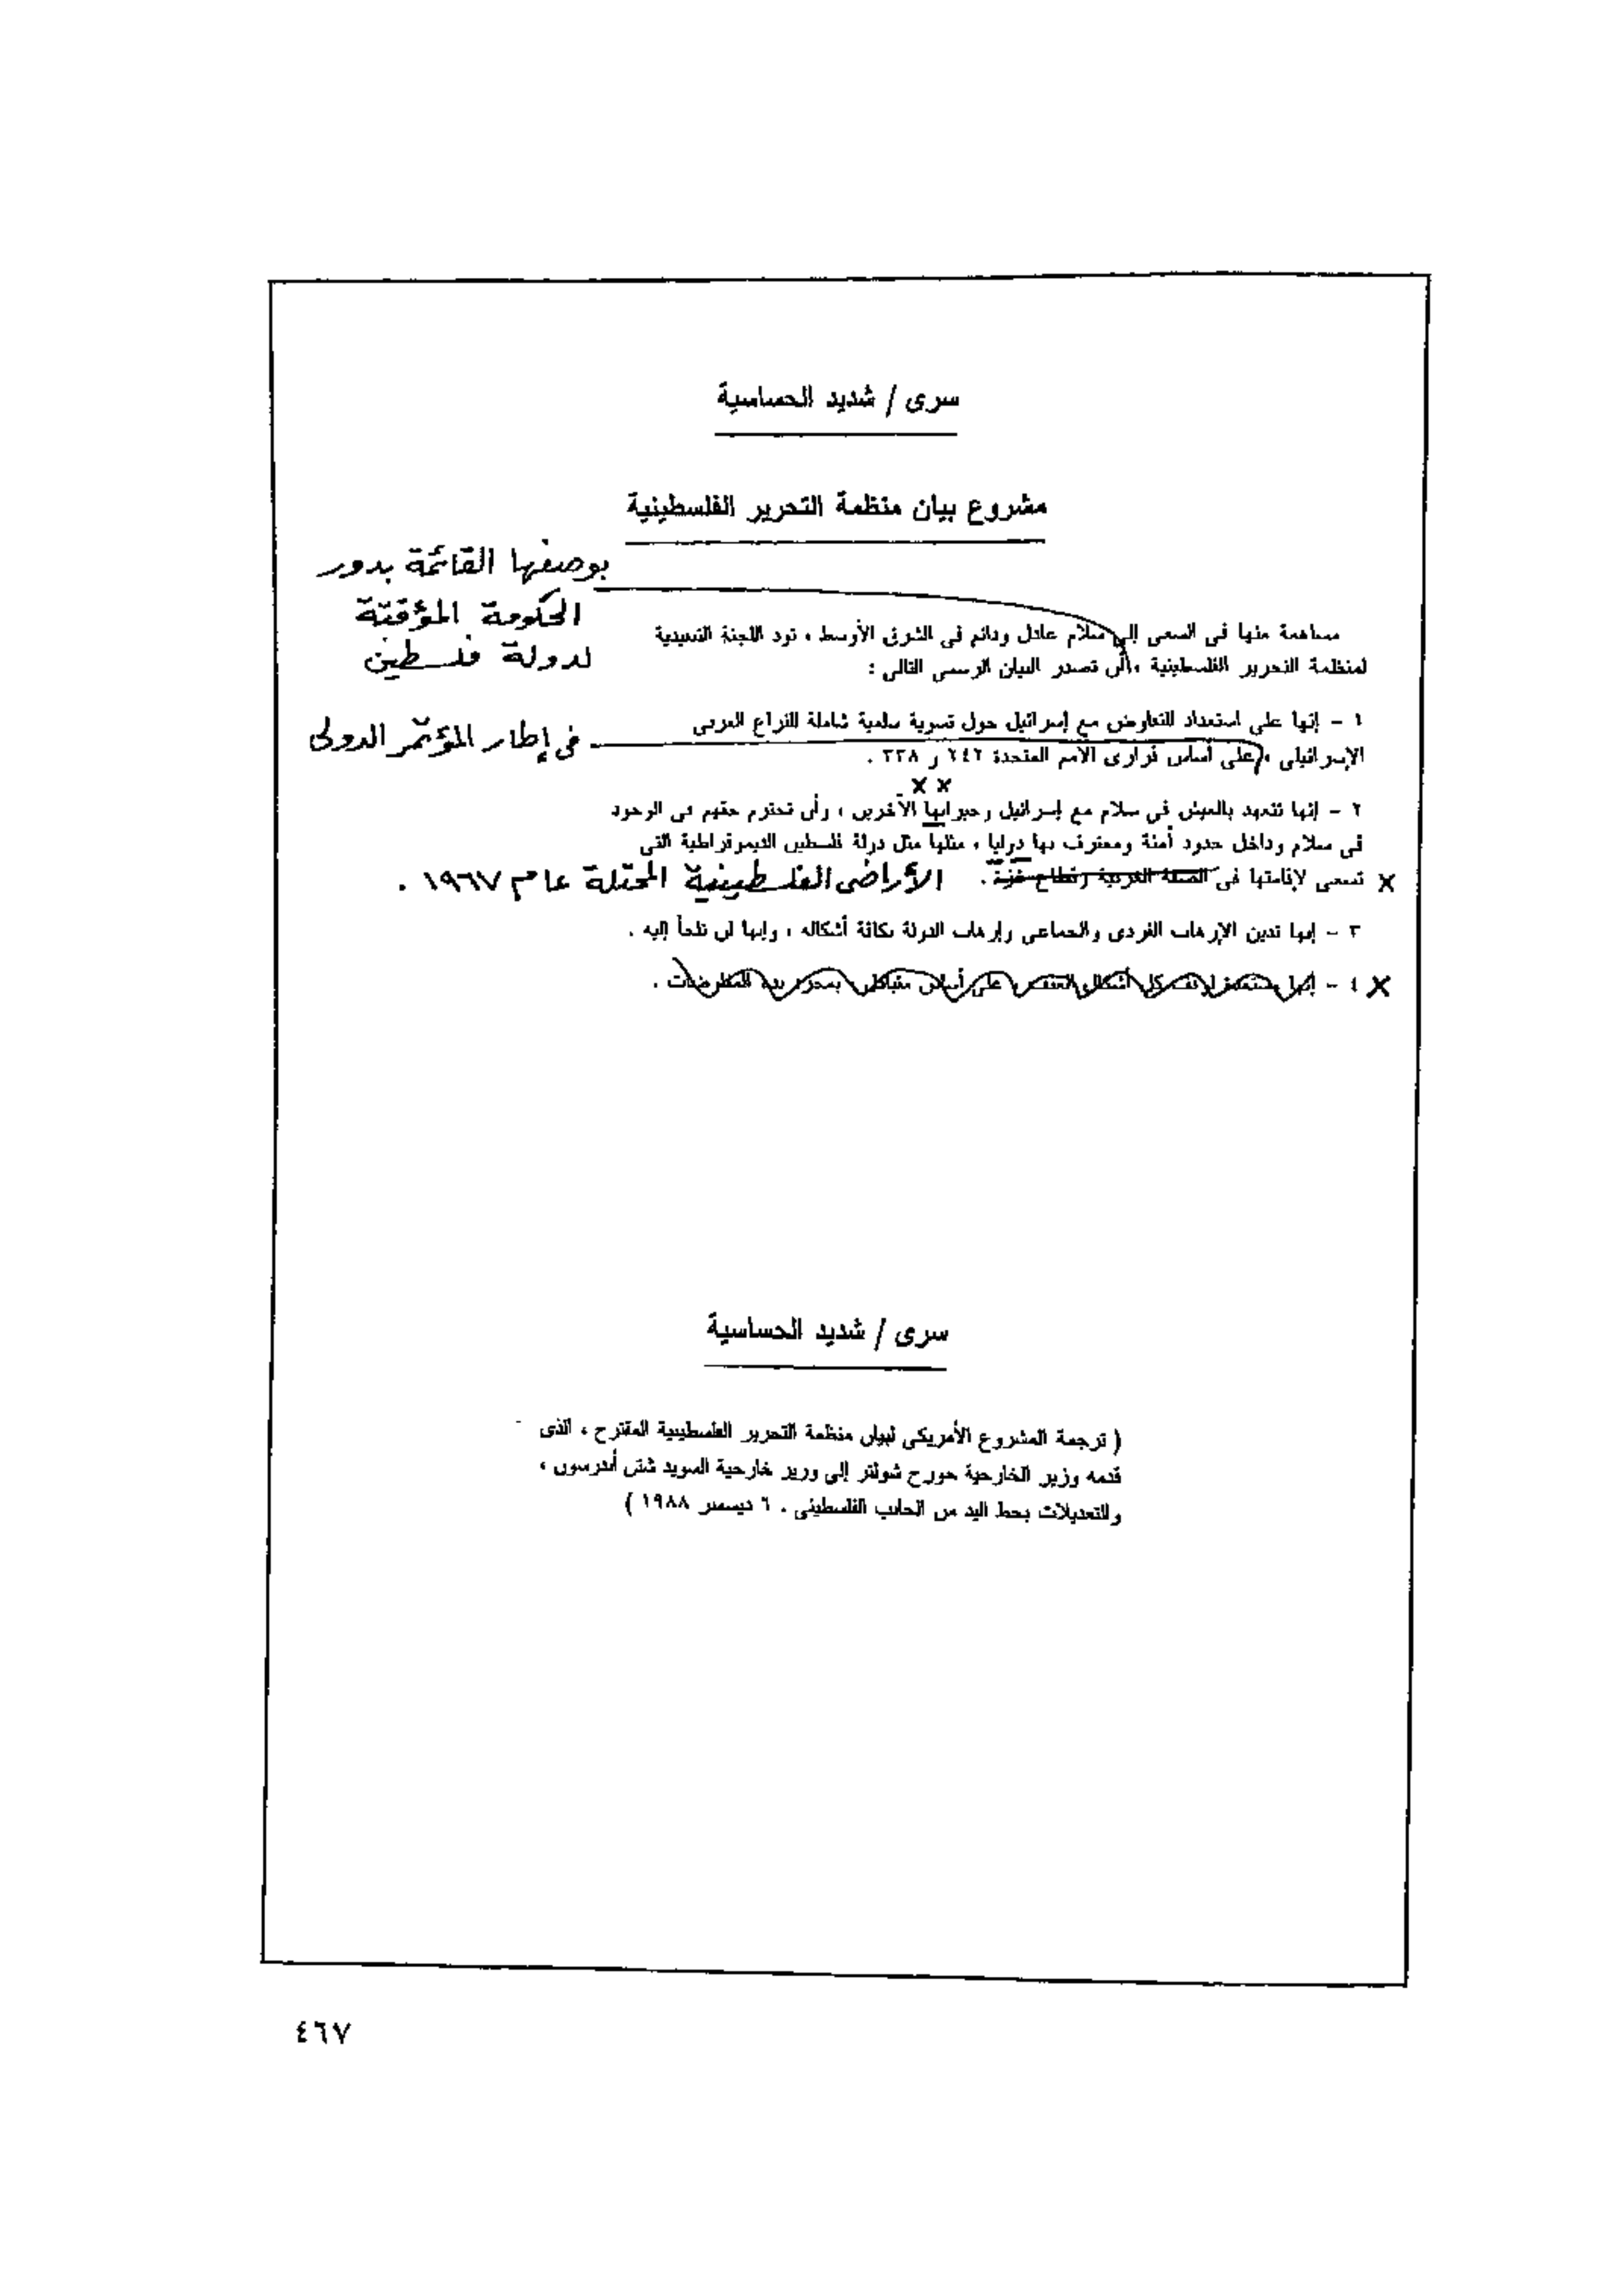 سرى / شديد الحساسية
مشروع بيان منظمة التحرير الفلسطينية
بوصفها القائمة بدور
الحكومة المؤقتة
لدولة فلسطين
مساهمة منها فى السعى إلى سلام عادل ودائم فى الشرق الأوسط ، تود اللجنة التنفيذية
لمنظمة التحرير الفلسطينية ، أن تصدر البيان الرسمى التالى :
١ - إنها على استعداد للتفاوض مع إسرائيل حول تسوية سلمية شاملة للنزاع العربى
فى إطار المؤتمر الدولى
الإسرائيلى ، على أساس قرارى الأمم المتحدة ٢٤٢ و ٣٣٨ .
x x
٢ - إنها تتعهد بالعيش فى سلام مع إسرائيل وجيرانها الآخرين ، وأن تحترم حقهم فى الوجود
فى سلام وداخل حدود آمنة ومعترف بها دوليا ، مثلها مثل دولة فلسطين الديموقراطية التى
x تسعى لإقامتها فى الضفة الغربية وقطاع غزة . الأراضى الفلسطينية المحتلة عام ١٩٦٧ .
٣ - إنها تدين الإرهاب الفردى والجماعى وإرهاب الدولة بكافة أشكاله ، وإنها لن تلجأ إليه .
x ٤ - إنها مستعدة لوقف كل أشكال العنف ، على أساس متبادل ، بمجرد بدء المفاوضات .
سرى / شديد الحساسية
( ترجمة المشروع الأمريكى لبيان منظمة التحرير الفلسطينية المقترح ، الذى
قدمه وزير الخارجية جورج شولتز إلى وزير خارجية السويد شتن أندرسون ،
والتعديلات بخط اليد من الجانب الفلسطينى . ٦ ديسمبر ١٩٨٨ )
٤٦٧